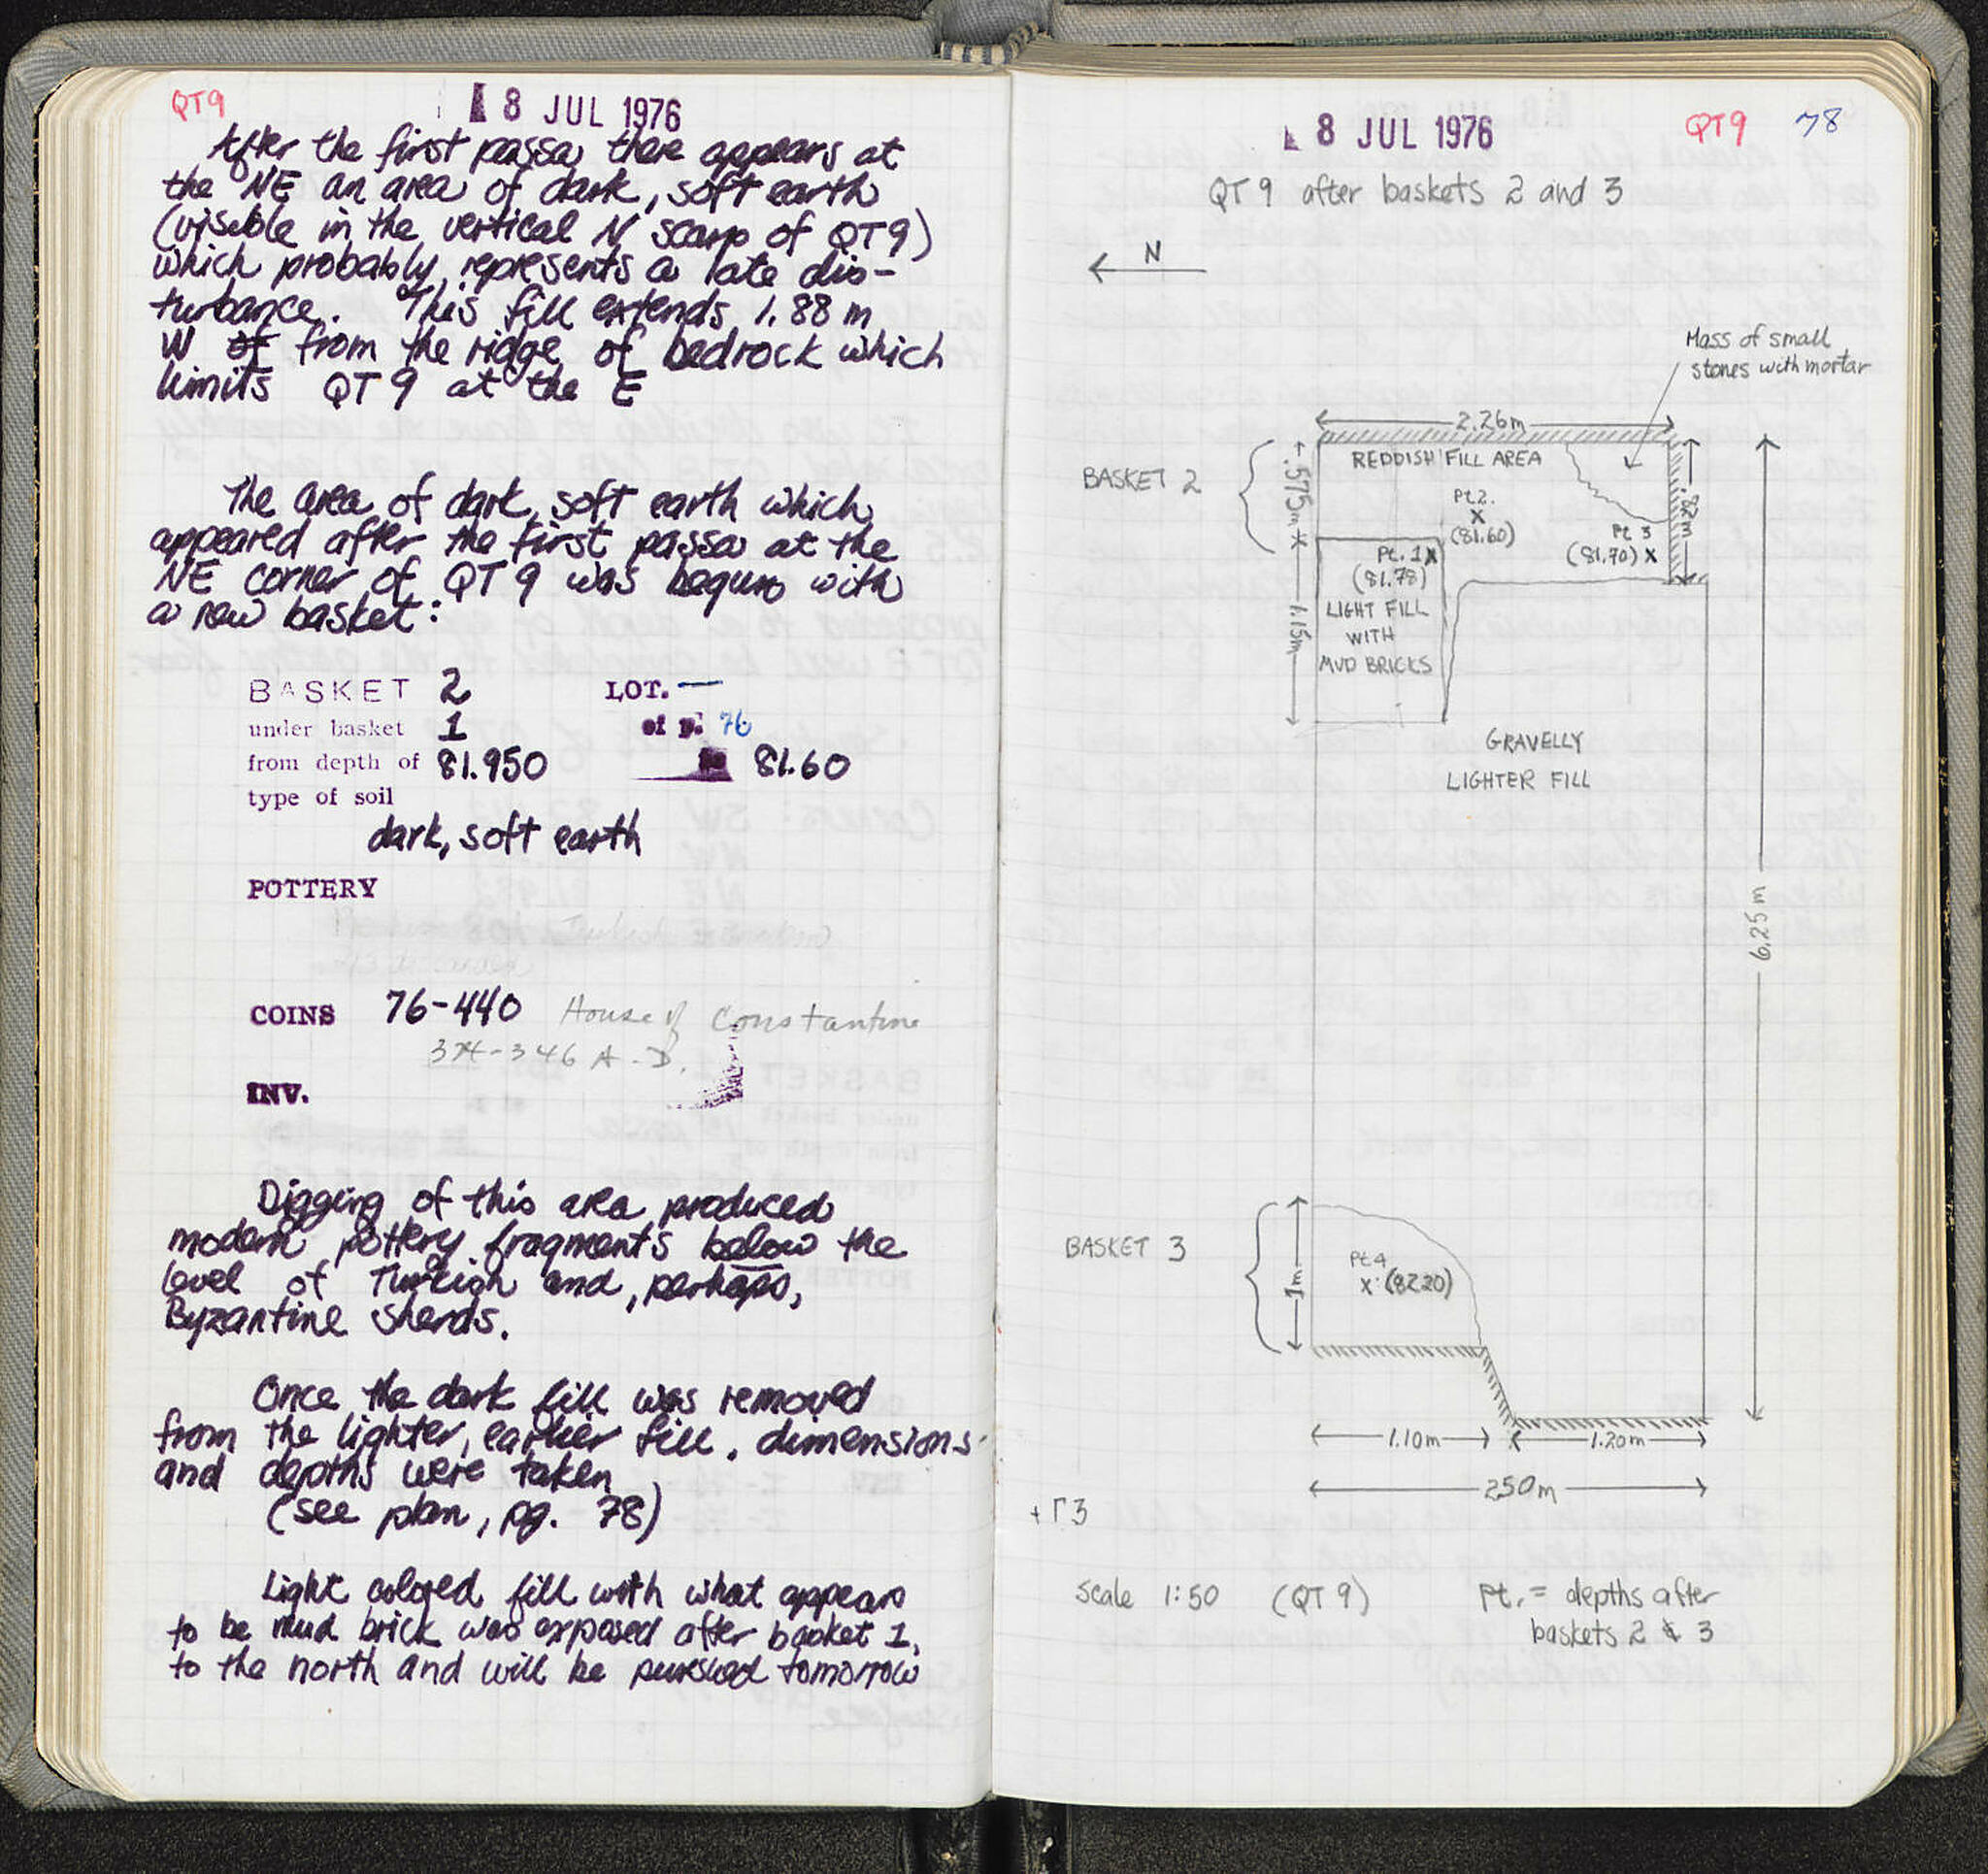 QT9
8 JUL 1976
After the first passa there appears at
the NE an area of dark, soft earth
(visible in the vertical N scarp of QT9)
which probably represents a late dis-
turbance. This fill extends 1.88 m
W of from the ridge of bedrock which
limits QT9 at the E
The area of dark, soft earth which
appeared after the first passa at the
NE corner of QT9 was begun with
a new basket:
BASKET 2 LOT. —
under basket 1 of p. 76
from depth of 81.950 81.60
type of soil
dark, soft earth
POTTERY
COINS 76-440 House of Constantine
346 A.D.
INV.
Digging of this area produced
modern pottery fragments below the
level of Turkish and, perhaps,
Byzantine sherds.
Once the dark fill was removed
from the lighter, earlier fill, dimensions
and depths were taken
(see plan, pg. 78)
Light colored fill with what appears
to be mud brick was exposed after basket 1,
to the north and will be pursued tomorrow
8 JUL 1976
QT9 78
QT9 after baskets 2 and 3
N
Mass of small
stones with mortar
2.26m
REDDISH FILL AREA
BASKET 2
.575m
Pt 2.
X
(81.60)
.82m
Pt 3
(81.70) X
Pt. 1 X
(81.78)
LIGHT FILL
WITH
MUD BRICKS
1.15m
GRAVELLY
LIGHTER FILL
6.25m
BASKET 3
1m
Pt 4
X (82.20)
1.10m
1.20m
2.50m
+ Γ3
Scale 1:50 (QT9)
Pt. = depths after
baskets 2 & 3